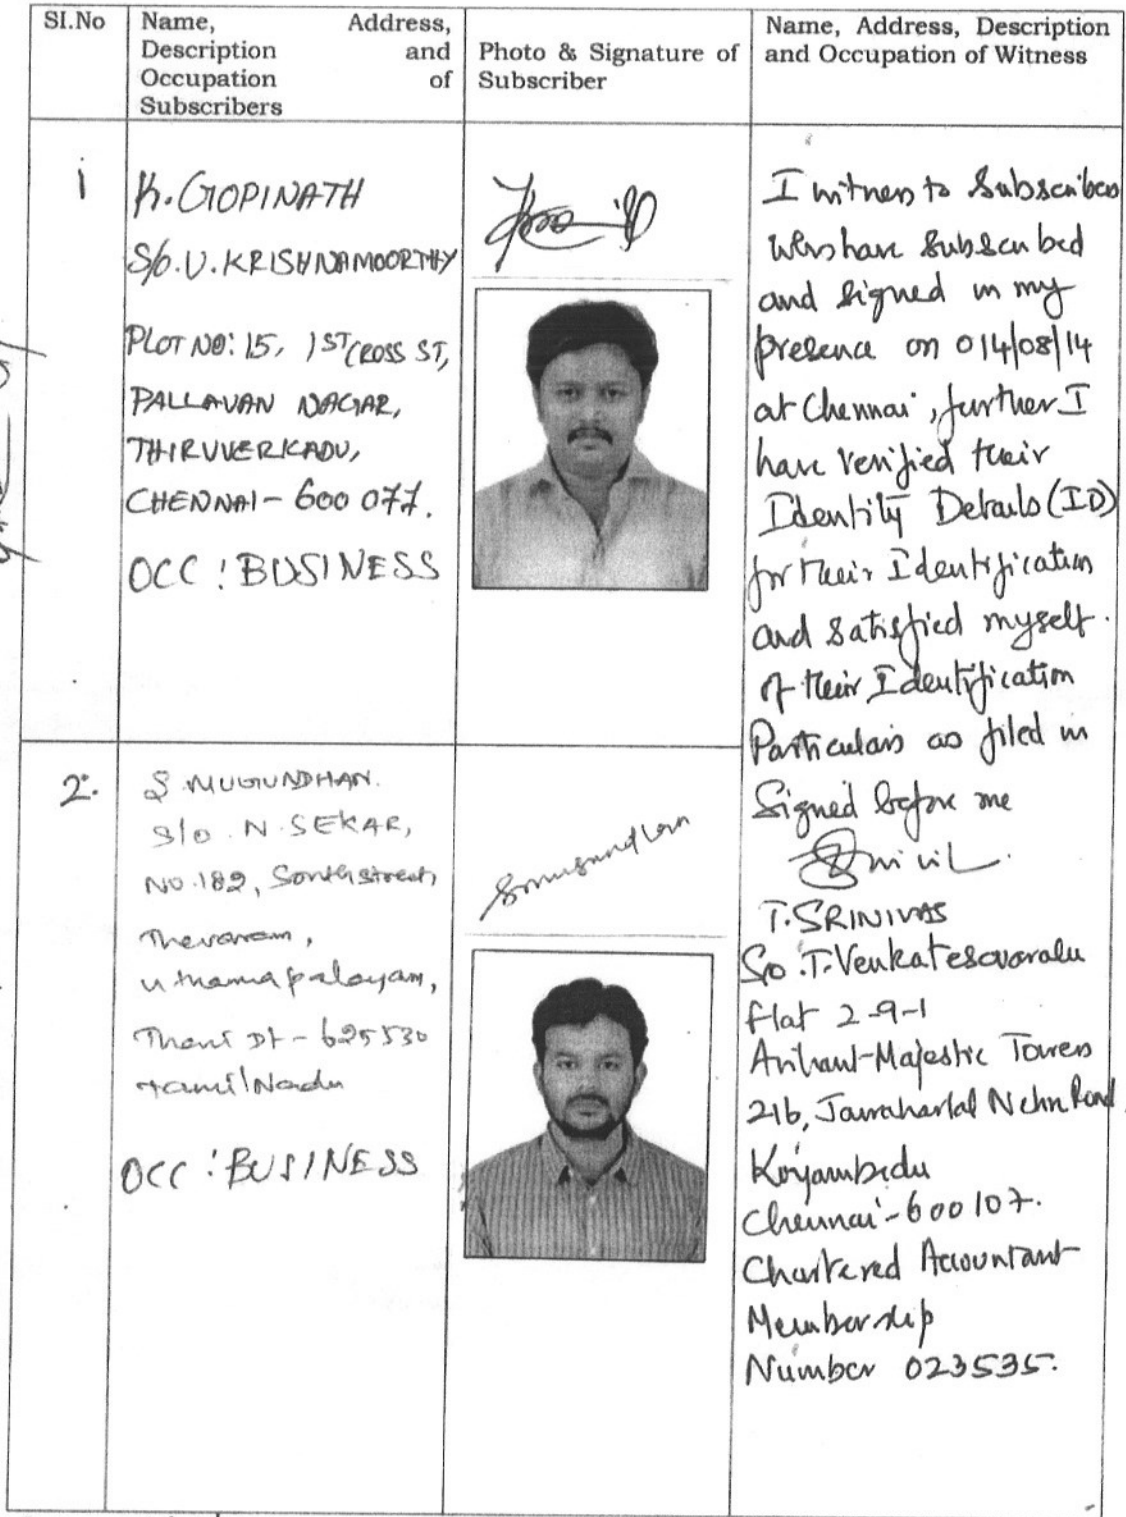 SI.No
Name, Address,
Description and
Occupation of
Subscribers
Photo & Signature of
Subscriber
Name, Address, Description
and Occupation of Witness
1
K. GOPINATH
S/o. V. KRISHNAMOORTHY
PLOT NO: 15, 1ST CROSS ST,
PALLAVAN NAGAR,
THIRUVERKADU,
CHENNAI - 600 077.
OCC : BUSINESS
I witness to Subscribers
who have Subscribed
and signed in my
presence on 014/08/14
at Chennai, further I
have verified their
Identity Details (ID)
for their Identification
and satisfied myself.
of their Identification
Particulars as filed in
Signed before me
T. SRINIVAS
S/o. T. Venkateswaralu
flat 2-9-1
Arihant-Majestic Towers
216, Jawaharlal Nehru Road
Koyambedu
Chennai - 600107.
Chartered Accountant
Membership
Number 023535.
2.
S. MUGUNDHAN.
S/o. N. SEKAR,
NO. 182, South street,
Thevaram,
uthamapalayam,
Theni Dt - 625530
Tamil Nadu
OCC : BUSINESS
Smugundhan